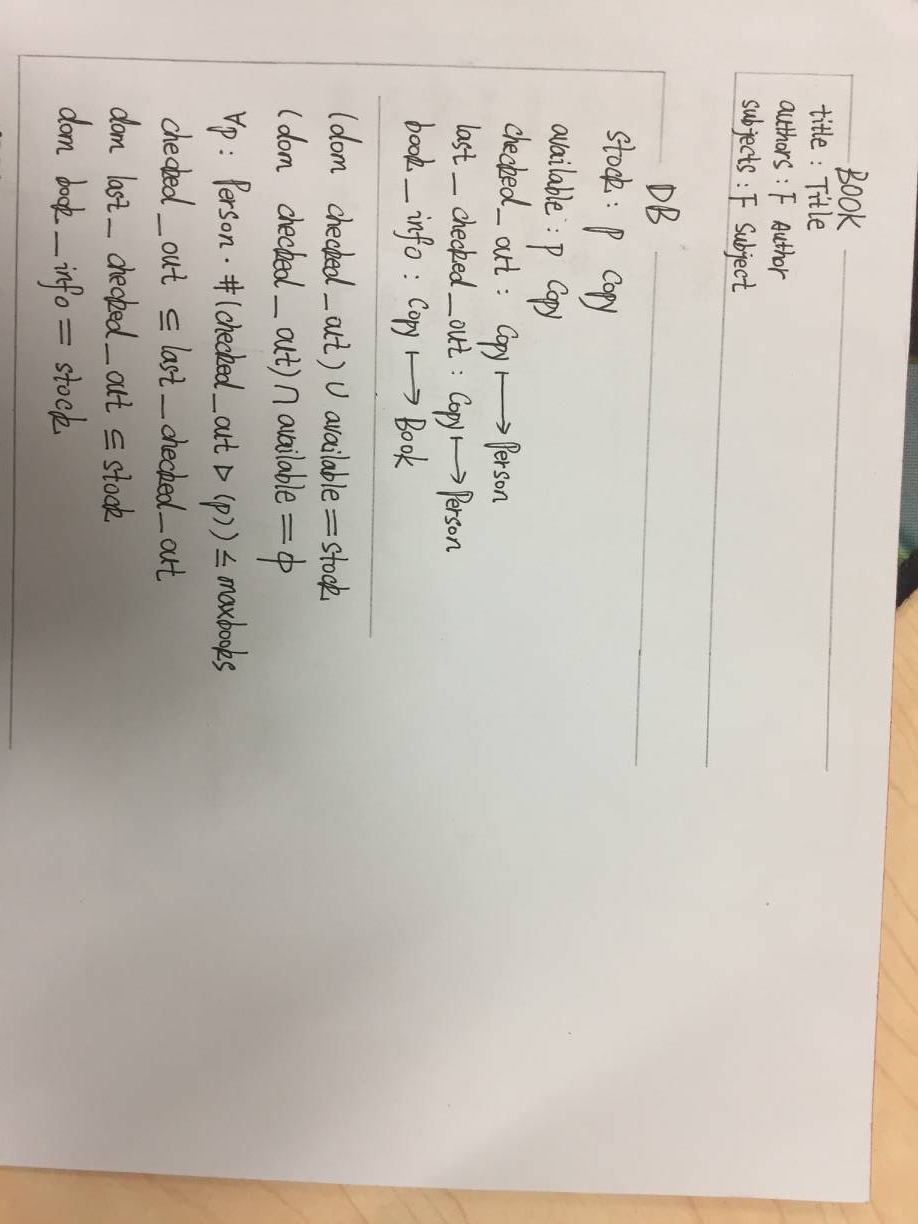 BOOK
title : Title
authors : F Author
subjects : F Subject
DB
stock : P Copy
available : P Copy
checked_out : Copy ⟼ Person
last_checked_out : Copy ⟼ Person
book_info : Copy ⟼ Book
(dom checked_out) ∪ available = stock
(dom checked_out) ∩ available = ϕ
∀p : Person · #(checked_out ▷ (p)) ≤ maxbooks
checked_out ⊆ last_checked_out
dom last_checked_out ⊆ stock
dom book_info = stock